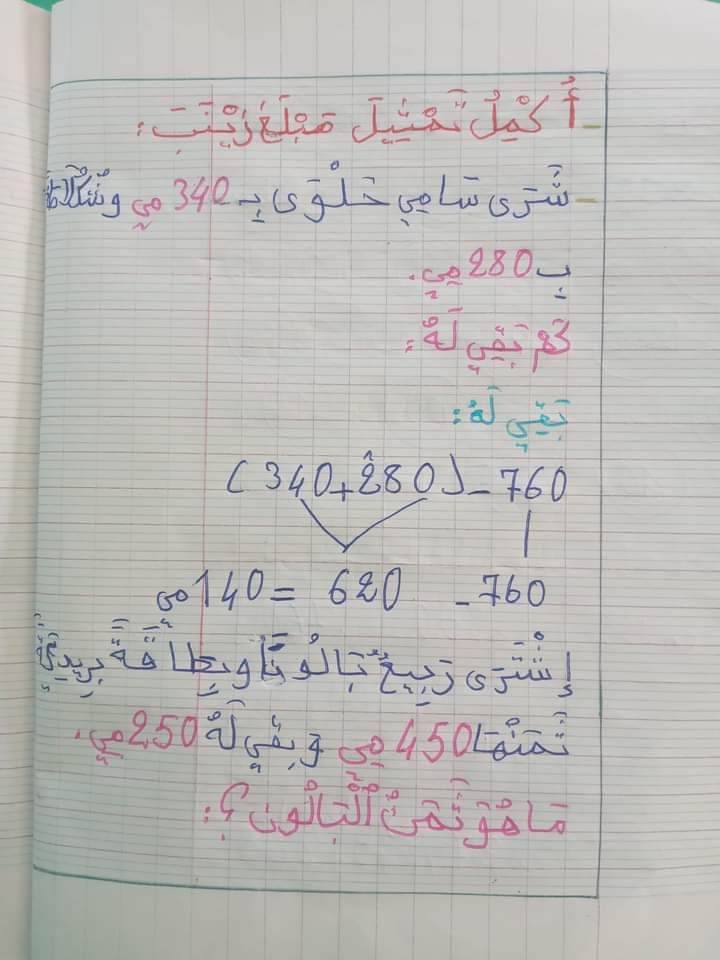 أُكْمِلُ تَمْثِيلَ مَبْلَغَ زَيْنَبَ:
شَرَى سَامِي حَلْوَى بِـ 340 مي وشُكُلَاطَ
بِ 280 مِي.
كَمْ بَقِيَ لَهُ:
بَقِيَ لَهُ:
760 - (280 + 340)
760 - 620 = 140 مي
إِشْتَرَى رَبِيعُ بَالُونًا وبِطَاقَةً بَرِيدِيَّةً
ثَمَنُهَا 450 مِي وَبَقِيَ لَهُ 250 مِي.
مَا هُوَ ثَمَنُ الْبَالُونِ؟: